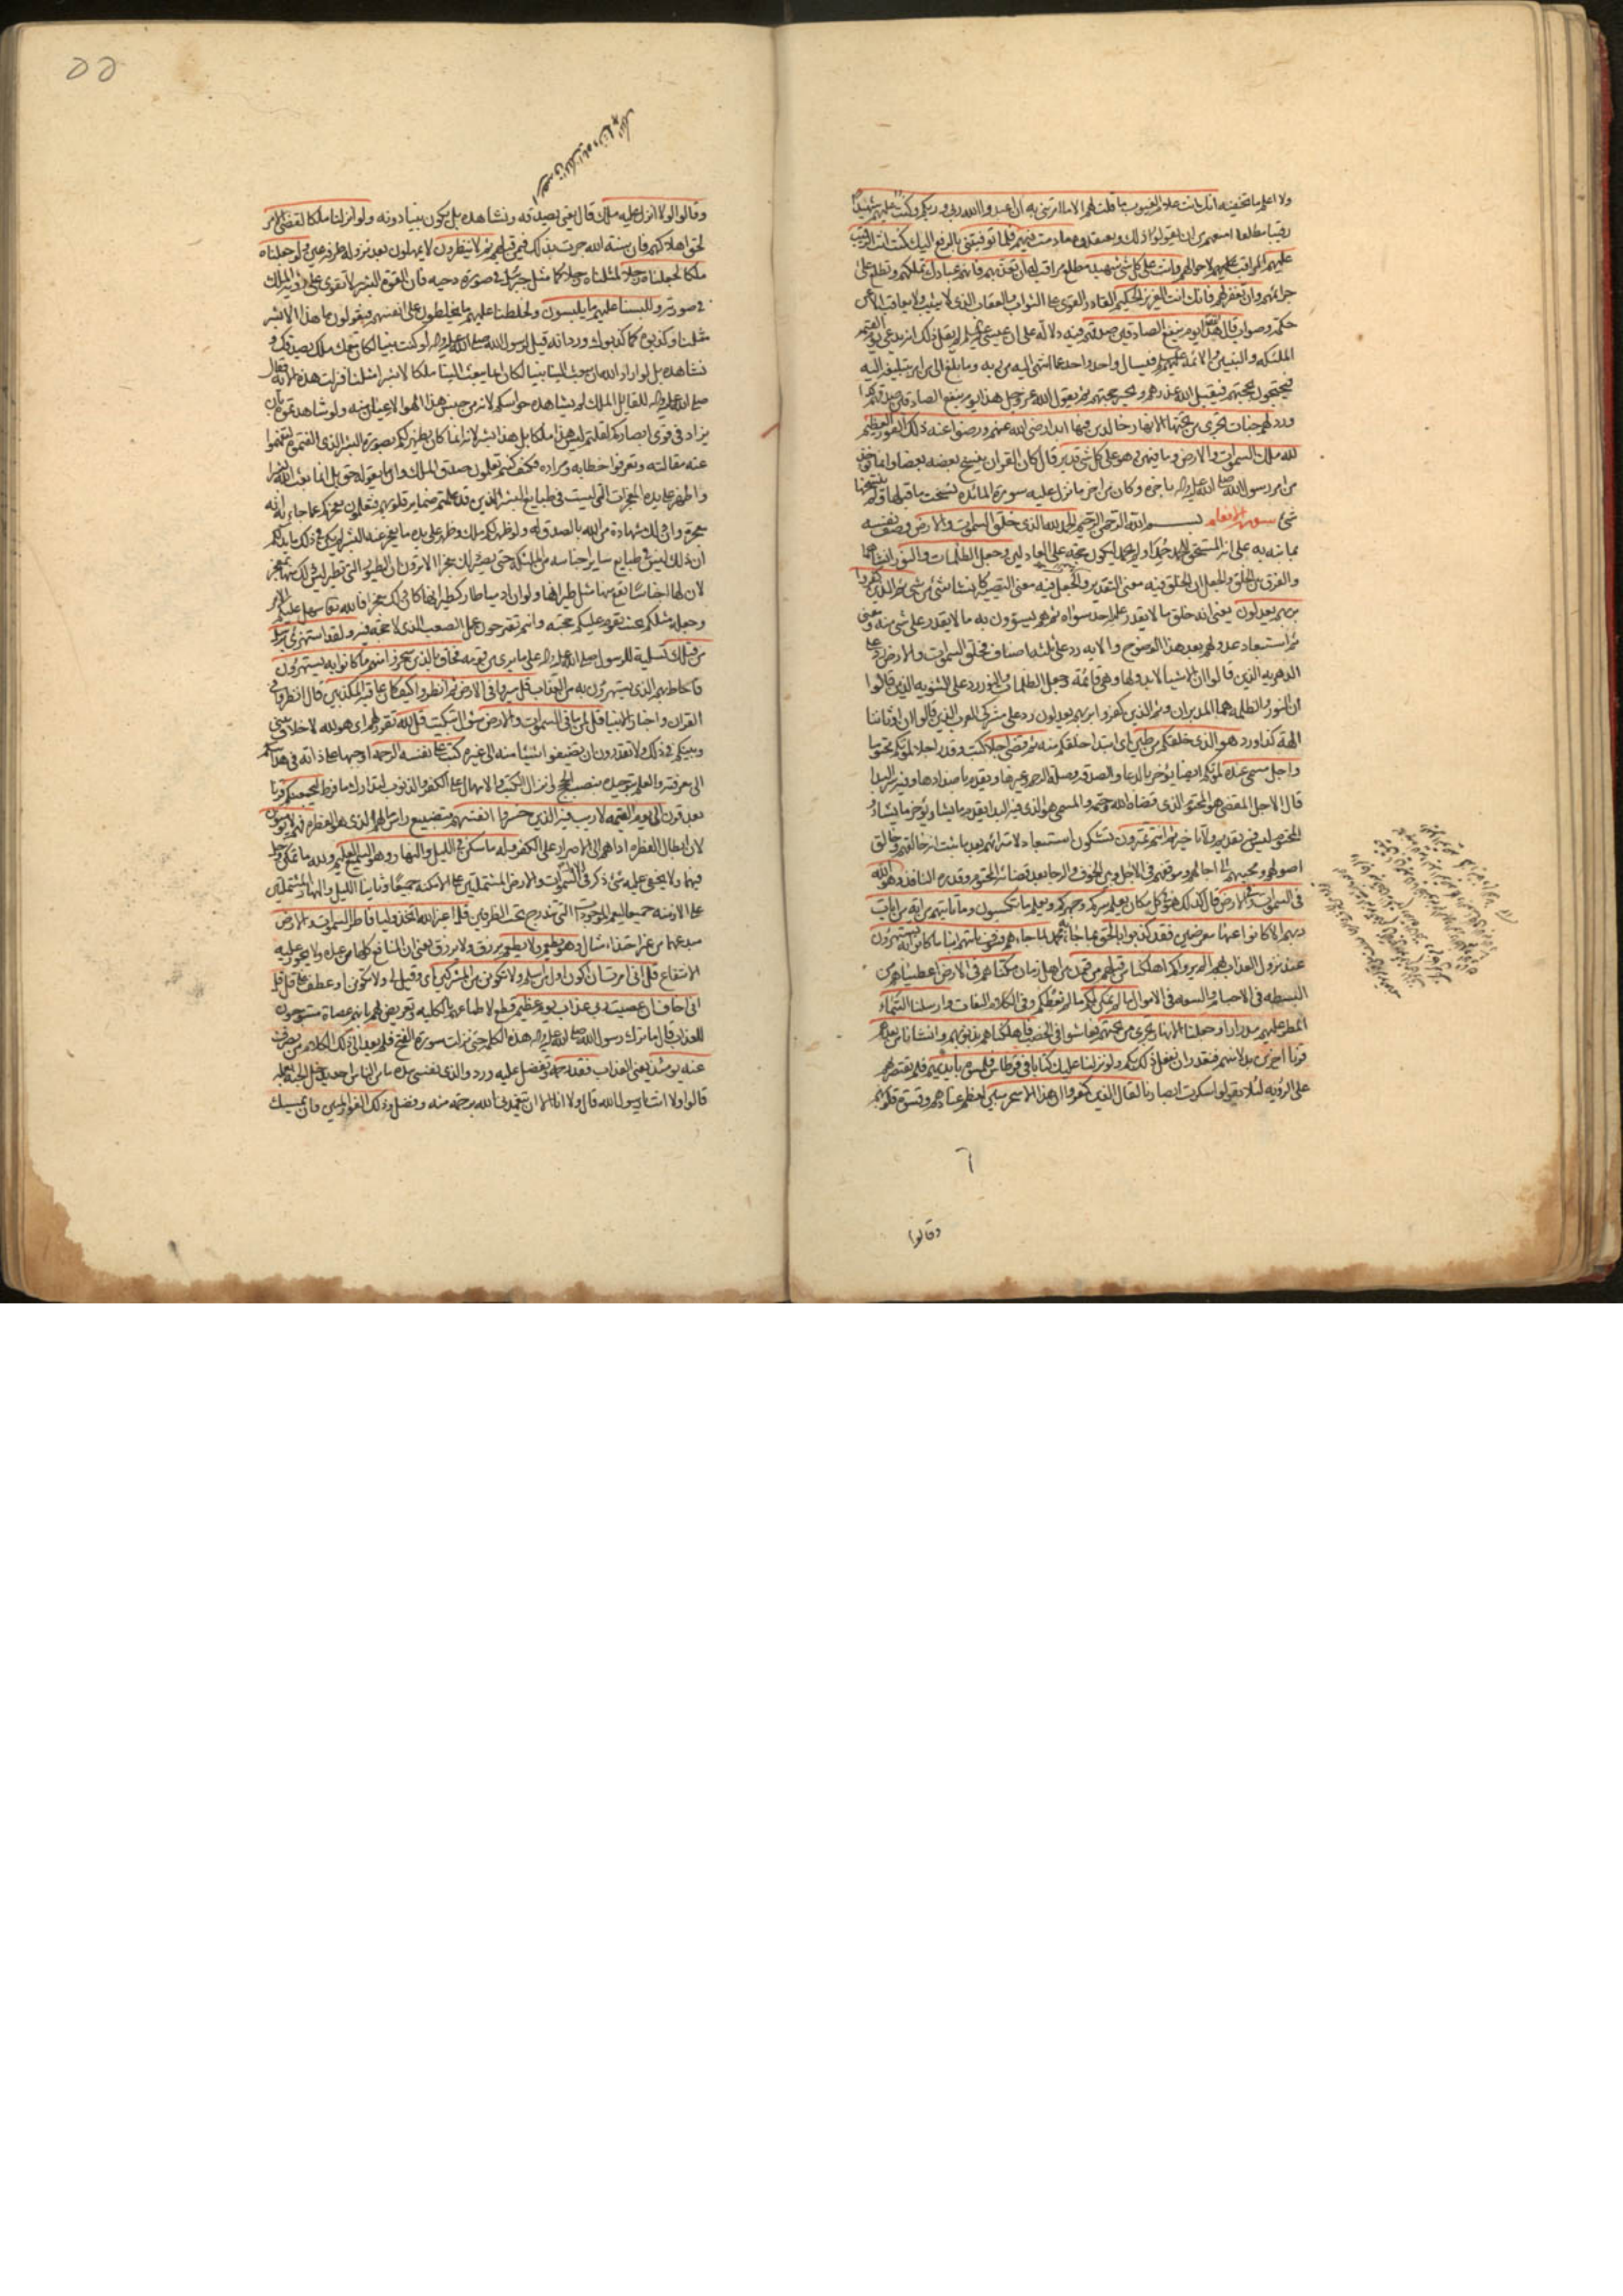 ولا اعلم ما تخفيه انك انت علام الغيوب ما قلت لهم الا ما امرتني به ان اعبدوا الله ربي وربكم وكنت عليهم شهيدا
رقيبا مطلعا امنعهم من ان يقولوا ذلك ويعتقدوه ما دمت فيهم فلما توفيتني بالرفع اليك كنت انت الرقيب
عليهم المراقب لاحوالهم وانت على كل شئ شهيد مطلع مراقب له ان تعذبهم فانهم عبادك تملكهم وتطلع على
جرائمهم وان تغفر لهم فانك انت العزيز الحكيم القادر القوي على الثواب والعقاب الذي لا يثيب ولا يعاقب الا عن
حكمة وصواب قال الله هذا يوم ينفع الصادقين صدقهم فيه دلالة على ان عيسى لم يقل ذلك
فيحتجون بحجتهم فيقبل الله عذرهم ويجيز حجتهم ثم يقول الله عز وجل هذا يوم ينفع الصادقين صدقهم
لهم جنات تجري من تحتها الانهار خالدين فيها ابدا رضي الله عنهم ورضوا عنه ذلك الفوز العظيم
لله ملك السموات والارض وما فيهن وهو على كل شئ قدير قال كان القران ينسخ بعضه بعضا وانما يؤخذ
من امر رسول الله صلى الله عليه واله باخره وكان من اخر ما نزل عليه سورة المائدة نسخت ما قبلها ولم ينسخها
شئ سورة الانعام بسم الله الرحمن الرحيم الحمد لله الذي خلق السموات والارض وصف نفسه
بما نبه به على انه المستحق للحمد حمد او لم يحمد ليكون حجة على العادلين وجعل الظلمات والنور انشاهما
والفرق بين الخلق والجعل ان الخلق فيه معنى التقدير والجعل فيه معنى التصيير كانشاء شئ من شئ ثم الذين كفروا
بربهم يعدلون يعني انه خلق ما لا يقدر عليه احد سواه ثم هم يسوون به ما لا يقدر على شئ منه ومعنى
ثم استبعاد عدولهم بعد هذا الوضوح والاية رد على ثلثة اصناف فخلق السموات والارض رد على
الدهرية الذين قالوا ان الاشياء لا بدو لها وهي قائمة وجعل الظلمات والنور رد على الثنوية الذين قالوا
ان النور والظلمة هما المدبران وثم الذين كفروا بربهم يعدلون رد على مشركي العرب الذين قالوا ان اوثاننا
الهة كذا ورد هو الذي خلقكم من طين اي ابتدا خلقكم منه ثم قضى اجلا كتب وقدر اجلا لموتكم محتوما
واجل مسمى عنده لموتكم ايضا يؤخر بالدعاء والصدقة وصلة الرحم وغيرها ويقدم باضدادها وفيه البدا
قال الاجل المقضي هو المحتوم الذي قضاه الله وحتمه والمسمى هو الذي فيه البداء يقدم ما يشاء ويؤخر ما يشاء
والمحتوم ليس فيه تقديم ولا تاخير ثم انتم تمترون تشكون استبعاد لامترائهم بعد ما ثبت انه خالقهم وخالق
اصولهم ومحييهم الى اجالهم
في السموات وفي الارض قال كذلك هو في كل مكان يعلم سركم وجهركم ويعلم ما تكسبون وما تاتيهم من اية من ايات
ربهم الا كانوا عنها معرضين فقد كذبوا بالحق لما جاءهم فسوف ياتيهم انباء ما كانوا به يستهزؤن
عند نزول العذاب بهم الم يروا كم اهلكنا من قبلهم من قرن من اهل زمان مكناهم في الارض اعطيناهم من
البسطة في الاجسام والسعة في الاموال ما لم نمكن لكم ما لم نعطكم وفي الكلام التفات وارسلنا السماء
المطر عليهم مدرارا وجعلنا الانهار تجري من تحتهم فعاشوا في الخصب فاهلكناهم بذنوبهم وانشانا من بعدهم
قرنا اخرين بدلا منهم فنقدر ان نفعل ذلك بكم ولو نزلنا عليك كتابا في قرطاس فلمسوه بايديهم فلم يقتصرهم
على الرؤية لئلا يقولوا سكرت ابصارنا لقال الذين كفروا ان هذا الا سحر مبين لعظم عنادهم وقسوة قلوبهم
٦
وقالوا
٥٥
وقالوا لولا انزل عليه ملك قال يعني يصدقه ونشاهده بل يكون نبيا دونه ولو انزلنا ملكا لقضي الامر
لحق اهلاكهم فان سنة الله جرت بذلك فيمن قبلهم ثم لا ينظرون لا يمهلون بعد نزوله طرفة عين ولو جعلناه
ملكا لجعلناه رجلا لمثلناه رجلا كما مثل جبرئيل في صورة دحية فان القوة البشرية لا تقوى على رؤية الملك
في صورته وللبسنا عليهم ما يلبسون ولخلطنا عليهم ما يخلطون على انفسهم فيقولون ما هذا الا بشر
مثلنا وكذبوه كما كذبوك ورد انه قيل لرسول الله صلى الله عليه واله لو كنت نبيا لكان معك ملك يصدقك و
نشاهده بل لو اراد الله ان يبعث الينا نبيا لكان انما يبعث الينا ملكا لا بشرا مثلنا فنزلت هذه الاية فقال
صلى الله عليه واله للقائل الملك لم تشاهده حواسكم لانه من جنس هذا الهواء لا عيان منه ولو شاهدتموه بان
يزاد في قوى ابصاركم لقلتم ليس هذا ملكا بل هذا بشر لانه انما كان يظهر لكم بصورة البشر الذي الفتموه لتفهموا
عنه مقالته وتعرفوا خطابه ومراده فكيف كنتم تعلمون صدق الملك وان ما يقوله حق بل انما بعث الله بشرا
واظهر على يده المعجزات التي ليست في طبايع البشر الذين قد علمتم ضماير قلوبهم فتعلمون بعجزكم عما جاء به انه
معجزة وان ذلك شهادة من الله بالصدق له ولو ظهر لكم ملك وظهر على يده ما يعجز عنه البشر لم يكن في ذلك ما يدلكم
ان ذلك ليس في طبايع ساير اجناسه من الملئكة حتى يصير ذلك معجزا الا ترون ان الطيور التي تطير ليس ذلك منها بمعجز
لان لها اجناسا تقع منها مثل طيرانها ولو ان ادميا طار كطيرانها كان ذلك معجزا فالله تعالى سهل عليكم الامر
وجعله مثلكم بحيث يقوم عليكم حجته وانتم تقترحون عمل الصعب الذي لا حجة فيه ولقد استهزئ برسل
من قبلك تسلية للرسول صلى الله عليه واله على ما يرى من قومه فحاق بالذين سخروا منهم ما كانوا به يستهزؤن
فاحاط بهم الذي يستهزؤن به من العذاب قل سيروا في الارض ثم انظروا كيف كان عاقبة المكذبين قال انظروا في
القران واخبار الانبياء قل لمن ما في السموات والارض سؤال تبكيت قل لله تقرير لهم اي هو لله لا خلاف بيني
وبينكم في ذلك ولا تقدرون ان تضيفوا شيئا منه الى غيره كتب على نفسه الرحمة اوجبها على ذاته في هدايتكم
الى معرفته والعلم بتوحيده بنصب الحجج وانزال الكتب والامهال على الكفر والذنوب لتدارك ما فرط ليجمعنكم قرنا
بعد قرن الى يوم القيمة لا ريب فيه الذين خسروا انفسهم بتضييع راس مالهم الذي هو الفطرة فهم لا يؤمنون
لان ابطال الفطرة اداهم الى الاصرار على الكفر وله ما سكن في الليل والنهار وهو السميع العليم
فيهما ولا يخفى عليه شئ ذكر في السموات والارض المشتملتين على الامكنة جميعا وثانيا الليل والنهار المشتملين
على الازمنة جميعا ليعم الموجودات التي تندرج تحت الظرفين قل اغير الله اتخذ وليا فاطر السموات والارض
مبدعهما من غير احتذاء مثال وهو يطعم ولا يطعم يرزق ولا يرزق يعني ان المنافع كلها من عنده ولا يجوز عليه
الانتفاع قل اني امرت ان اكون اول من اسلم ولا تكونن من المشركين اي وقيل لي ولا تكونن او عطف على قل قل
اني اخاف ان عصيت ربي عذاب يوم عظيم قطع لاطماعهم بالكلية وتعريض لهم بانهم عصاة مستوجبون
للعذاب قال ما ترك رسول الله صلى الله عليه واله هذه الكلمة حتى نزلت سورة الفتح فلم يعد الى ذلك الكلام من يصرف
عنه يومئذ يعني العذاب فقد رحمه وتفضل عليه ورد والذي نفسي بيده ما من الناس احد يدخل الجنة بعمله
قالوا ولا انت يا رسول الله قال ولا انا الا ان يتغمدني الله برحمة منه وفضل وذلك الفوز المبين وان يمسسك